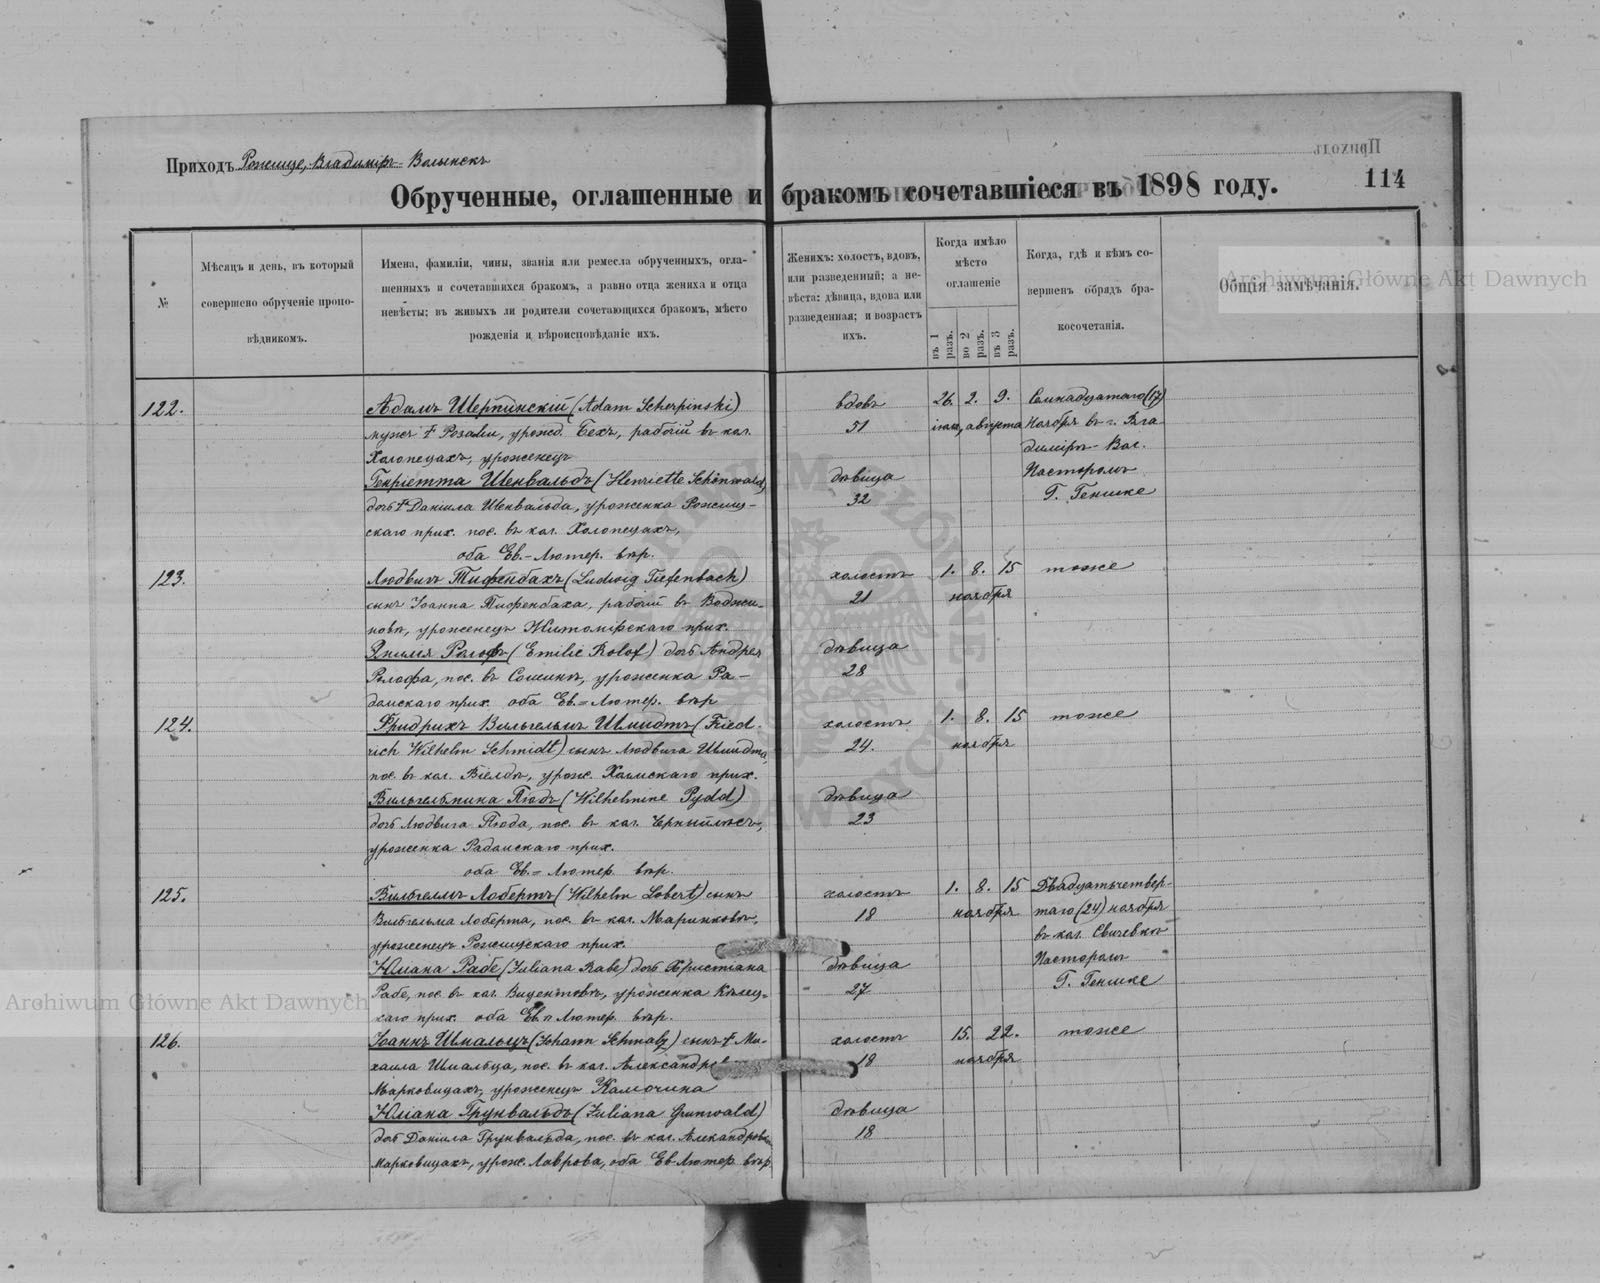 Приходъ Рожище, Владимiръ-Волынскъ
Обрученные, оглашенные и бракомъ сочетавшіеся въ 1898 году.
114
№
Мѣсяцъ и день, въ который
совершено обрученіе пропо-
вѣдникомъ.
Имена, фамиліи, чины, званія или ремесла обрученныхъ, огла-
шенныхъ и сочетавшихся бракомъ, а равно отца жениха и отца
невѣсты; въ живыхъ ли родители сочетающихся бракомъ, мѣсто
рожденія и вѣроисповѣданіе ихъ.
Женихъ: холостъ, вдовъ,
или разведенный; а не-
вѣста: дѣвица, вдова или
разведенная; и возрастъ
ихъ.
Когда имѣло
мѣсто
оглашеніе
въ 1 разъ.
во 2 разъ.
въ 3 разъ.
Когда, гдѣ и кѣмъ со-
вершенъ обрядъ бра-
косочетанія.
Общія замѣчанія.
Archiwum Główne Akt Dawnych
122.
Адамъ Шерпинскій (Adam Scherpinski)
мужъ † Розаліи, урожд. Бехъ, рабочій въ кол.
Холопецахъ, уроженецъ
Генріетта Шенвальдъ (Henriette Schönwald)
дочь † Даніила Шенвальда, уроженка Рожищ-
скаго прих. пос. въ кол. Холопецахъ,
оба Ев.-Лютер. вѣр.
вдовъ
51
дѣвица
32
26. 2. 9.
августа
Семнадцатаго (17)
Ноября въ г. Вла-
димірѣ-Вол.
Пасторомъ
Г. Генике
123.
Людвигъ Тифенбахъ (Ludwig Tiefenbach)
сынъ Іоанна Тифенбаха, рабочій въ
уроженецъ Житомірскаго прих.
Эмилія Ролофъ (Emilie Rolof) дочь Андрея
Ролофа, пос. въ уроженка Ра-
домскаго прих. оба Ев.=Лютер. вѣр
холостъ
21
дѣвица
28
1. 8. 15
ноября
тоже
124.
Фридрихъ Вильгельмъ Шмидтъ (Fried-
rich Wilhelm Schmidt) сынъ Людвига Шмидта,
пос. въ кол. урож. Холмскаго прих.
Вильгельмина Пюдъ (Wilhelmine Pydd)
дочь Людвига Пюда, пос. въ кол.
уроженка Радомскаго прих.
оба Ев.=Лютер. вѣр.
холостъ
24.
дѣвица
23
1. 8. 15
ноября
тоже
125.
Вильгельмъ Лобертъ (Wilhelm Lobert) сынъ
Вильгельма Лоберта, пос. въ кол. Маринковѣ,
уроженецъ Рожищскаго прих.
Юліана Рабе (Juliana Rabe) дочь Христіана
Рабе, пос. въ кол. уроженка Кѣлец-
каго прих. оба Ев.=Лютер. вѣр.
холостъ
18
дѣвица
27
1. 8. 15
ноября
Двадцатьчетвер-
таго (24) ноября
въ кол. Свичевкѣ
Пасторомъ
Г. Генике
126.
Іоаннъ Шмальцъ (Johann Schmalz) сынъ † Ми-
хаила Шмальца, пос. въ кол.
Марковицахъ, уроженецъ Камочина
Юліана Грунвальдъ (Juliana Grunwald)
дочь Даніила Грунвальда, пос. въ кол.
Марковицахъ, урож. Лаврова, оба Ев Лютер вѣр
холостъ
18
дѣвица
18
15. 22.
ноября
тоже
Archiwum Główne Akt Dawnych